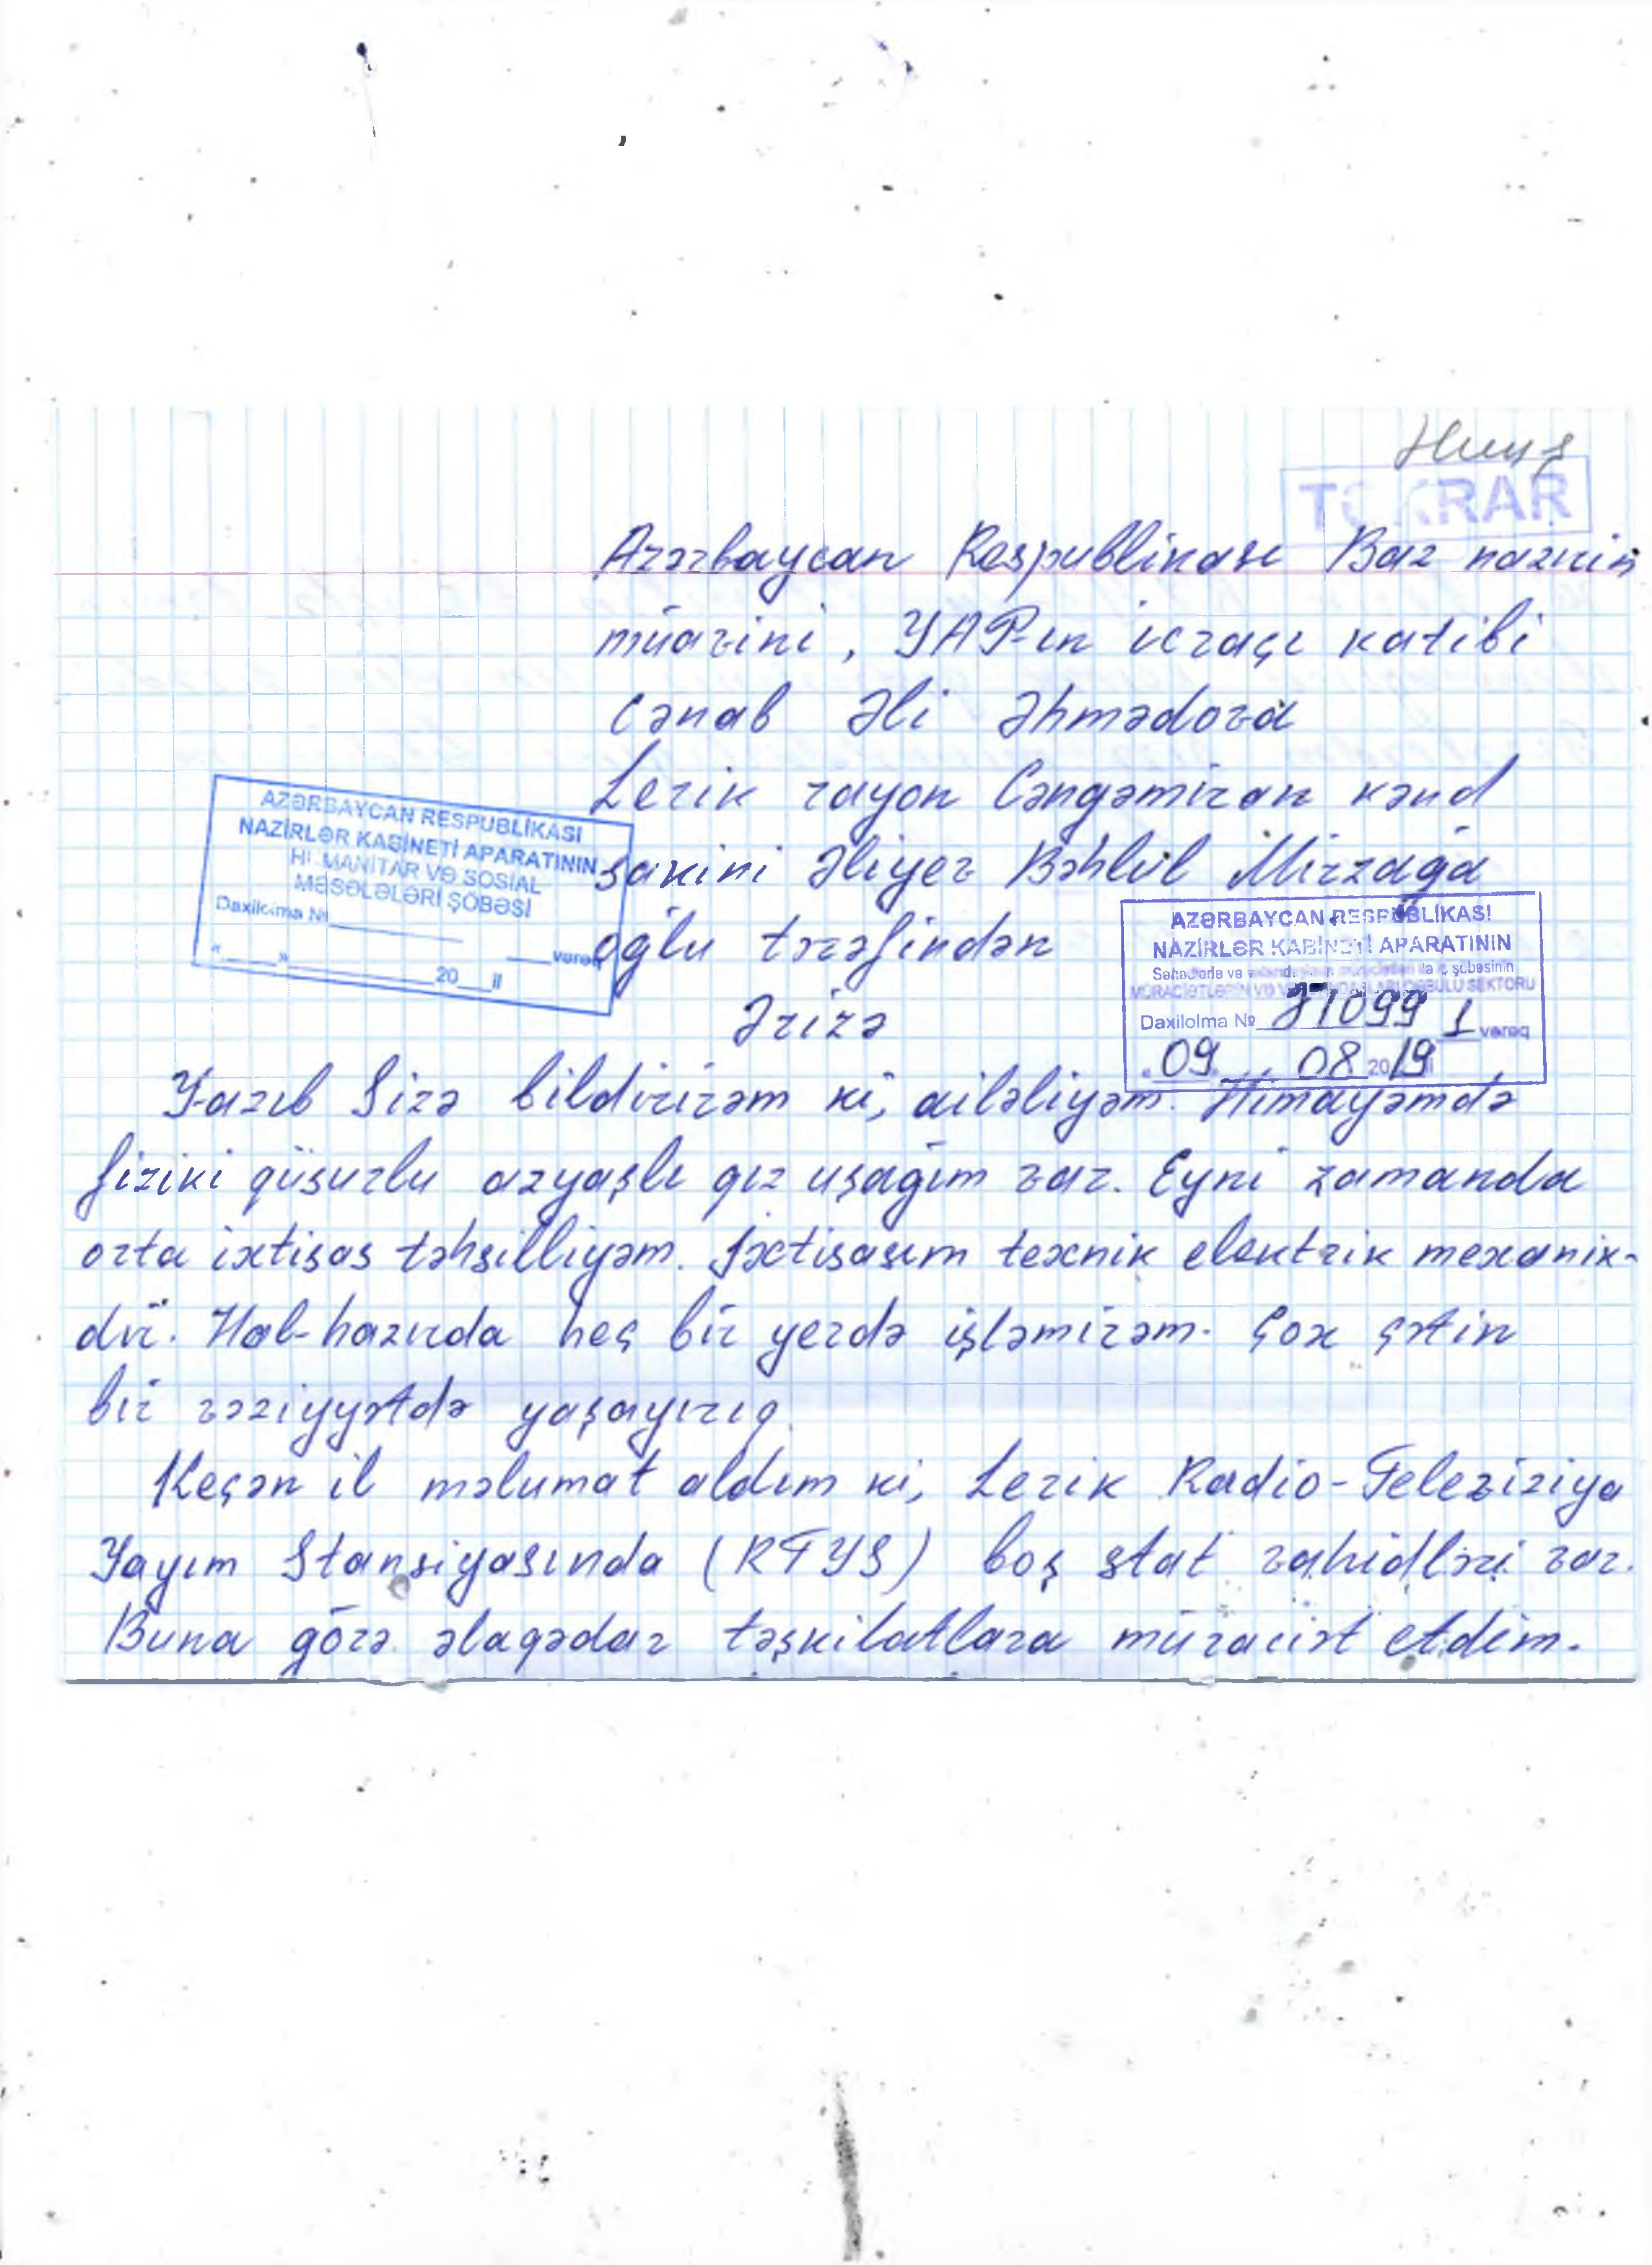 TƏKRAR
Azərbaycan Respublikası Baş nazirin
müavini, YAP-ın icraçı katibi
Cənab Əli Əhmədova
Lerik rayon Cəngəmiran kənd
sakini Əliyev Bəhlul Mirzağa
oğlu tərəfindən
Ərizə
AZƏRBAYCAN RESPUBLİKASI
NAZİRLƏR KABİNETİ APARATININ
HUMANİTAR VƏ SOSIAL
MƏSƏLƏLƏRİ ŞÖBƏSİ
Daxilolma №
vərəq
« » 20 il
AZƏRBAYCAN RESPUBLİKASI
NAZİRLƏR KABİNETİ APARATININ
şöbəsinin
SEKTORU
Daxilolma № 37099 1 vərəq
09 08 2019 il
Yazıb Sizə bildirirəm ki, ailəliyəm. Himayəmdə
fiziki qüsurlu azyaşlı qız uşağım var. Eyni zamanda
orta ixtisas təhsilliyəm. İxtisasım texnik elektrik mexanik-
dir. Hal-hazırda heç bir yerdə işləmirəm. Çox çətin
bir vəziyyətdə yaşayırıq.
Keçən il məlumat aldım ki, Lerik Radio-Televiziya
Yayım Stansiyasında (RTYS) boş ştat vahidləri var.
Buna görə əlaqədar təşkilatlara müraciət etdim.